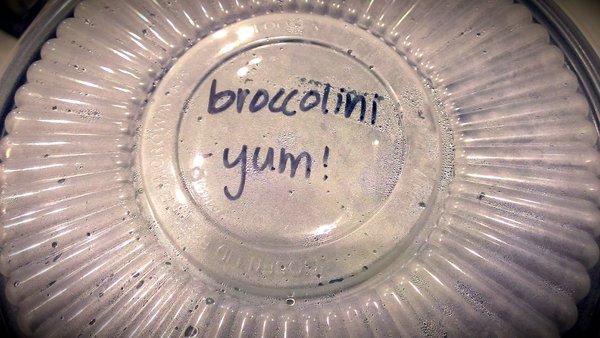 broccolini
yum!